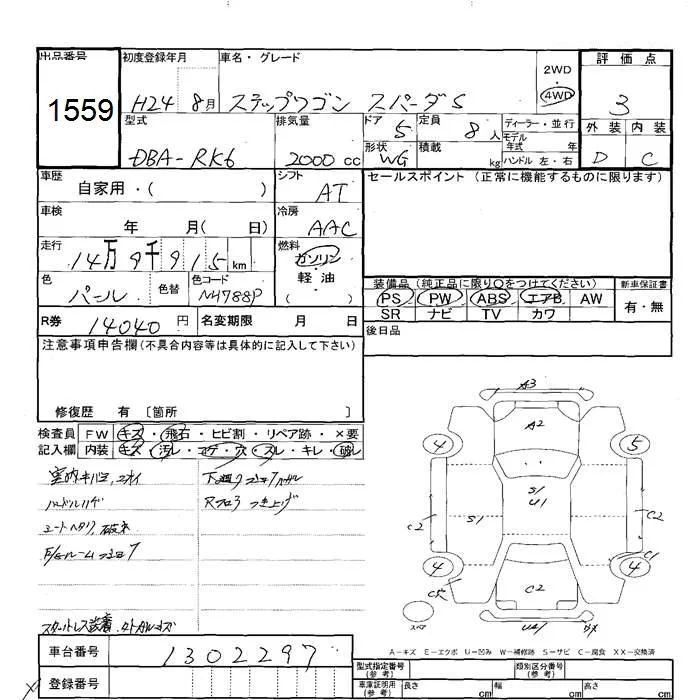 出品番号 初度登録年月 車名・グレード 2WD 評価点
1559 H24 8月 ステップワゴン スパーダS 4WD 3
型式 排気量 ドア 定員 ディーラー・並行 外装 内装
DBA-RK6 2000cc 5 8人 モデル年式 年 D C
形状 積載 WG kg ハンドル 左・右
車歴 シフト セールスポイント(正常に機能するものに限ります)
自家用・( ) AT
車検 冷房
年 月( 日) AAC
走行 燃料
14万9千915km ガソリン
色 色替 色コード 軽油
パール NH788P ( )
装備品(純正品に限り○をつけてください) 新車保証書
PS PW ABS エアB AW 有・無
SR ナビ TV カワ
R券 14040円 名変期限 月 日 後日品
注意事項申告欄(不具合内容等は具体的に記入して下さい)
修復歴 有 〔箇所 〕
検査員 FW キズ・飛石・ヒビ割・リペア跡・×要
記入欄 内装 キズ・汚レ・コゲ・穴・スレ・キレ・破レ
ハンドルハゲ
シートヘタリ、破れ
A3
A2
4 5
S1 S/U1
C2 C2
4 4
C1
C2
スペア
A-キズ E-エクボ U-凹み W-補修跡 S-サビ C-腐食 XX-交換済
車台番号 1302297
登録番号
型式指定番号(参考) 類別区分番号(参考)
車庫証明用(参考) 長さ cm 幅 cm 高さ cm